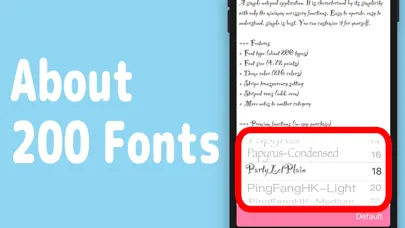 About
200 Fonts
A simple notepad application. It is characterized by its simplicity
with only the minimum necessary functions. Easy to operate, easy to
understand, simple is best. You can customize it for yourself.
=== Features
+ Font type (about 200 types)
+ Font size (4-78 points)
+ Theme color (216 colors)
+ Stripe transparency setting
+ Striped rows (odd, even)
+ Move notes to another category
=== Premium functions (in-app purchase)
Papyrus
Papyrus-Condensed 16
PartyLetPlain 18
PingFangHK-Light 20
PingFangHK-Medium 22
Default